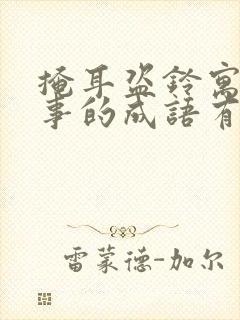 掩耳盜鈴寓
事的成語有
雷蒙德-加尔